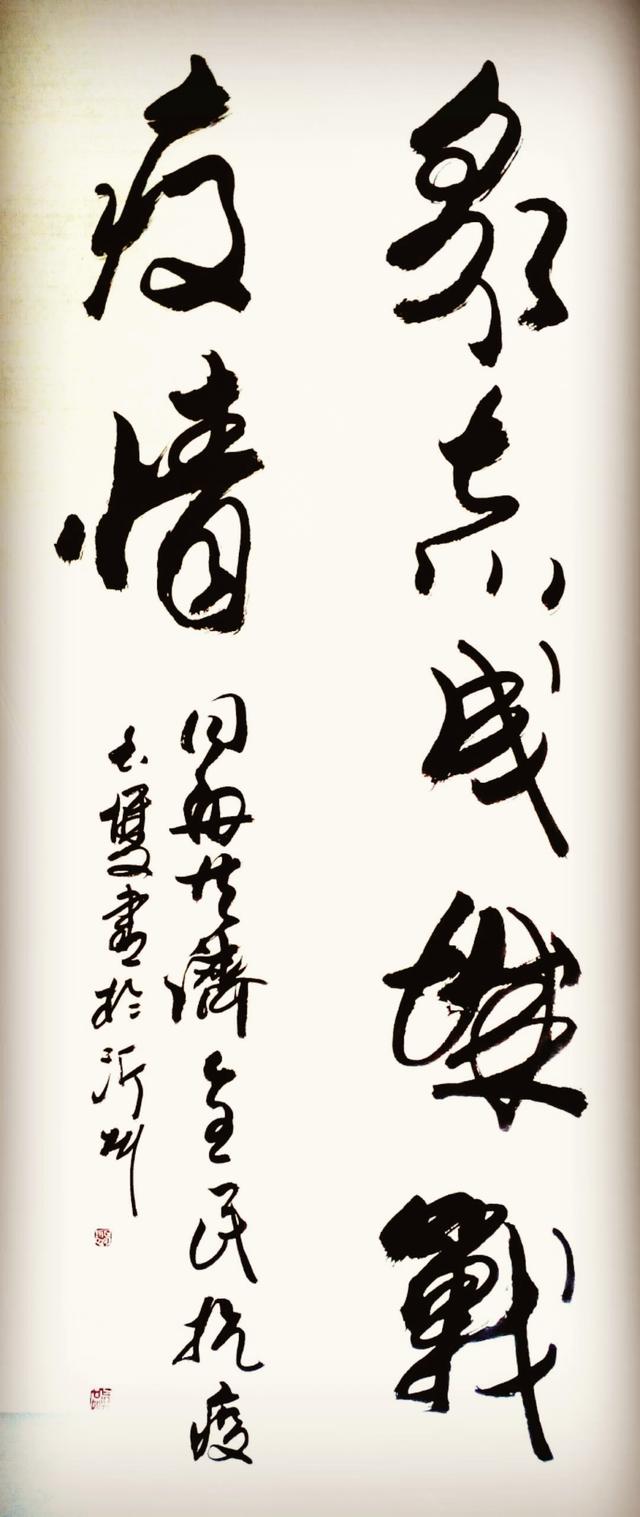 众志成城战
疫情
同舟共济全民抗疫
书于沂州